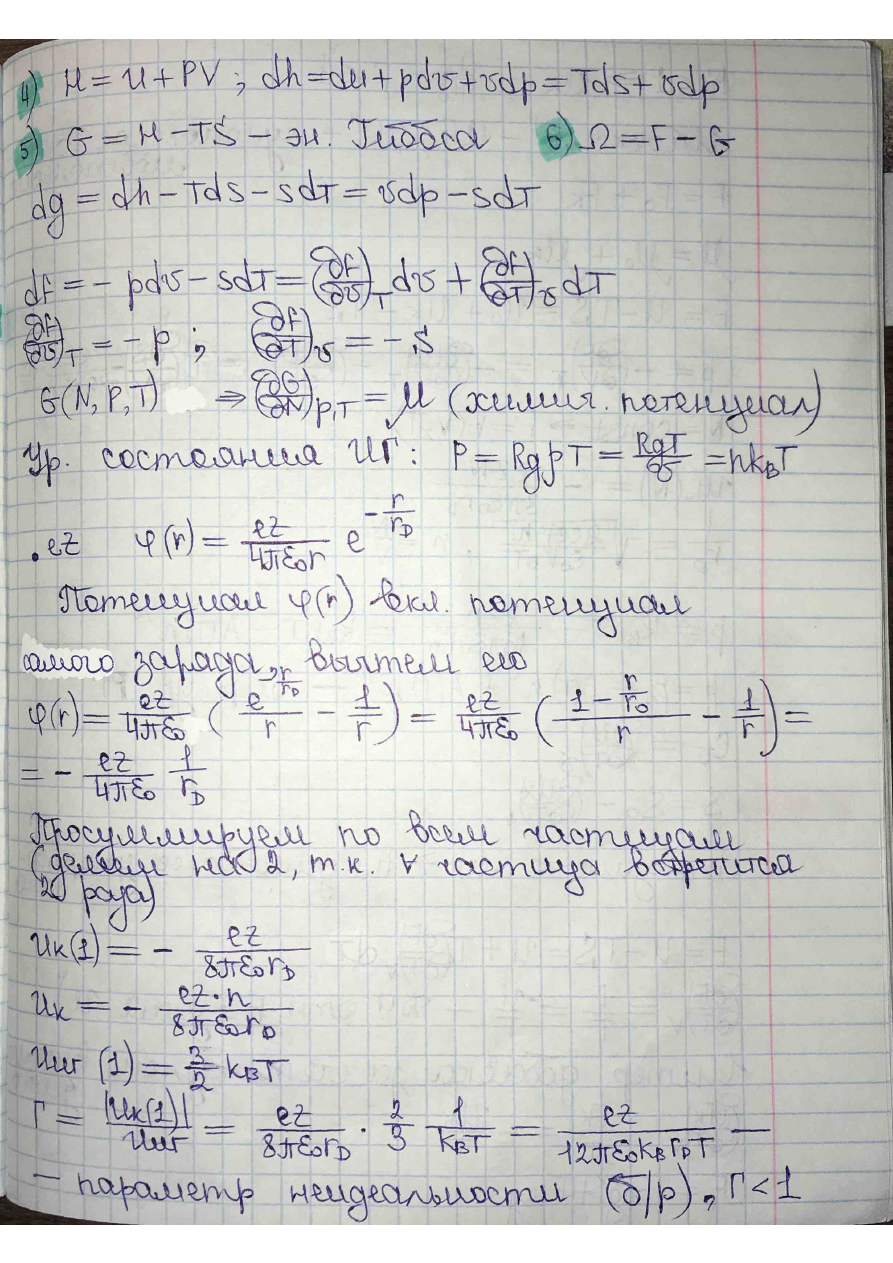 4) H = U + PV ; dh = du + pdv + vdp = Tds + vdp
5) G = H − TS − эн. Гиббса 6) Ω = F − G
dg = dh − Tds − sdT = vdp − sdT
df = − pdv − sdT = (∂f/∂v)_T dv + (∂f/∂T)_v dT
(∂f/∂v)_T = − p ; (∂f/∂T)_v = − s
G(N, P, T) ⇒ (∂G/∂N)_{P,T} = μ (химич. потенциал)
Ур. состояния ИГ: P = RgρT = RgT/v = nk_BT
• ez φ(r) = ez/(4πε₀r) e^{−r/r_D}
Потенциал φ(r) вкл. потенциал
самого заряда, вычтем его
φ(r) = ez/(4πε₀) (e^{−r/r_D}/r − 1/r) = ez/(4πε₀) ((1 − r/r_D)/r − 1/r) =
= − ez/(4πε₀) 1/r_D
Просуммируем по всем частицам
(делим на 2, т.к. ∀ частица встретится
2 раза)
Uк(1) = − ez/(8πε₀r_D)
Uк = − ez·n/(8πε₀r_D)
Uиг (1) = 3/2 k_BT
Г = |Uк(1)|/Uиг = ez/(8πε₀r_D) · 2/3 1/(k_BT) = ez/(12πε₀k_Br_DT) —
— параметр неидеальности (б/р), Г < 1